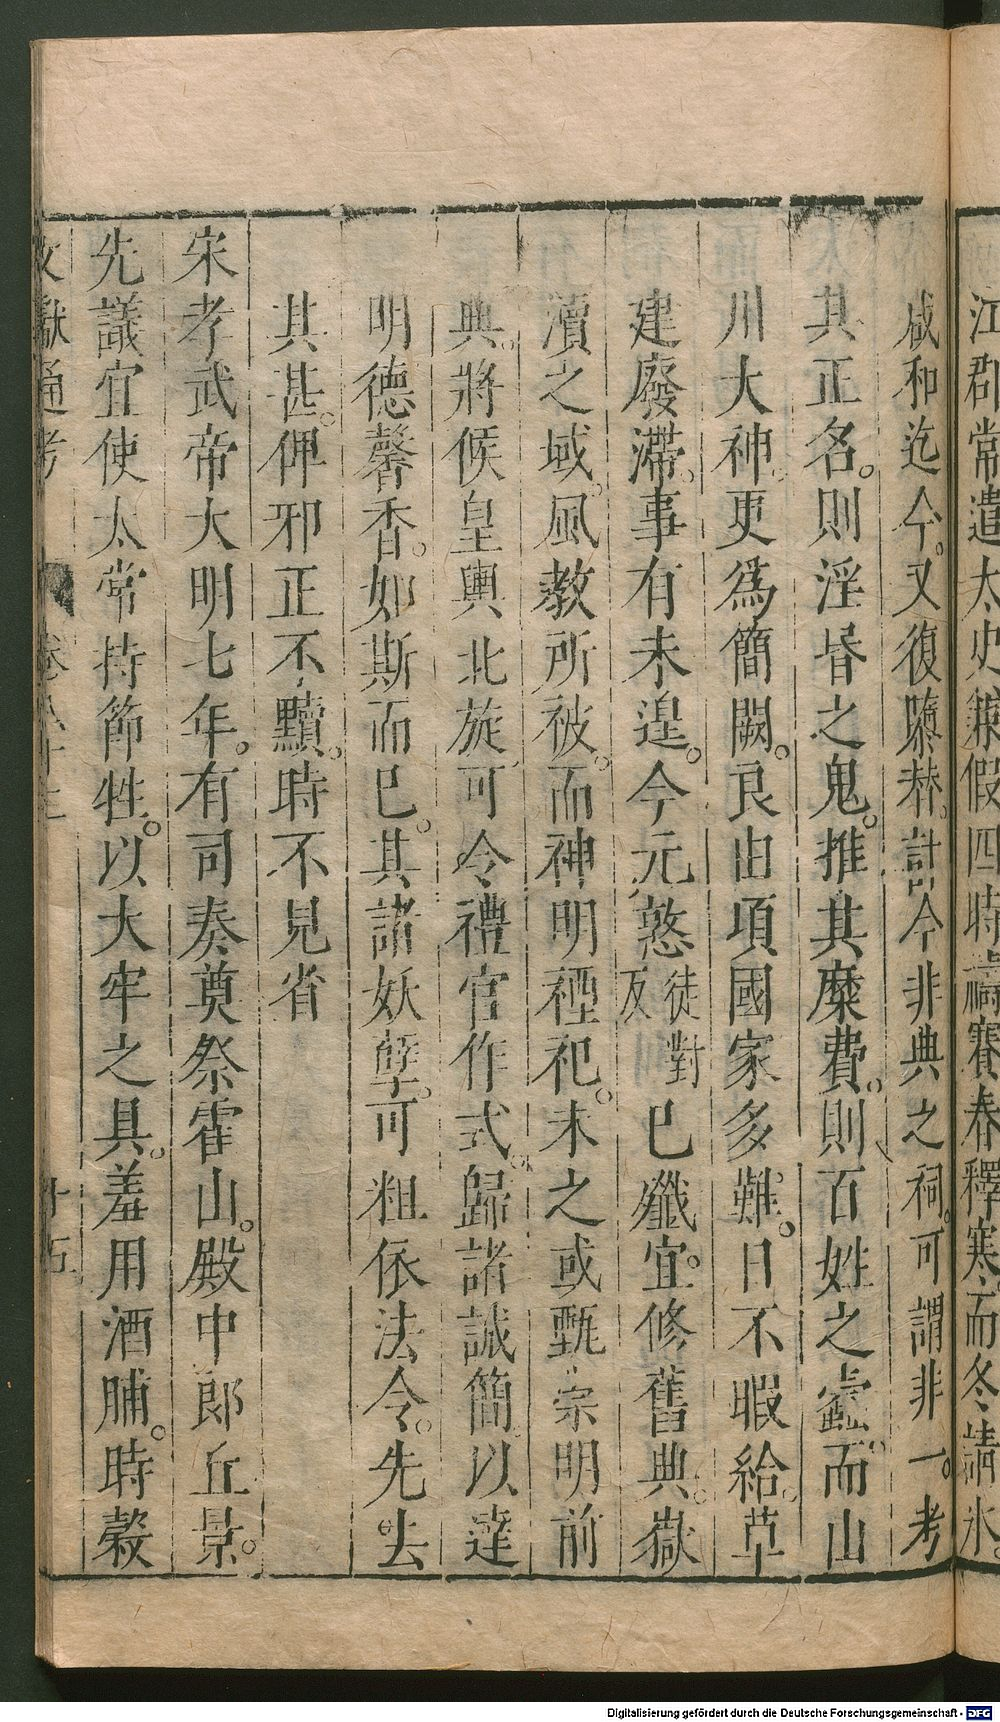 江郡常遣太史兼假四時禱賽春釋寒而冬請氷。
咸和迄今。又復隳替。計今非典之祠。可謂非一。考
其正名。則淫昬之鬼。推其糜費。則百姓之蠹。而山
川大神。更爲簡闕。良由項國家多難。日不暇給。草
建廢滯。事有未遑。今元憝徒對反已殱。宜修舊典。嶽
瀆之域。風教所被。而神明禋祀。未之或甄。崇明前
典。將候皇輿北旋。可令禮官作式。歸諸誠簡。以達
明德馨香。如斯而已。其諸妖孽。可粗依法令。先去
其甚。俾邪正不黷。時不見省
宋孝武帝大明七年。有司奏奠祭霍山。殿中郎丘景
先議宜使太常持節牲。以大牢之具。羞用酒脯。時穀
文獻通考 卷八十三 十五
Digitalisierung gefördert durch die Deutsche Forschungsgemeinschaft - DFG